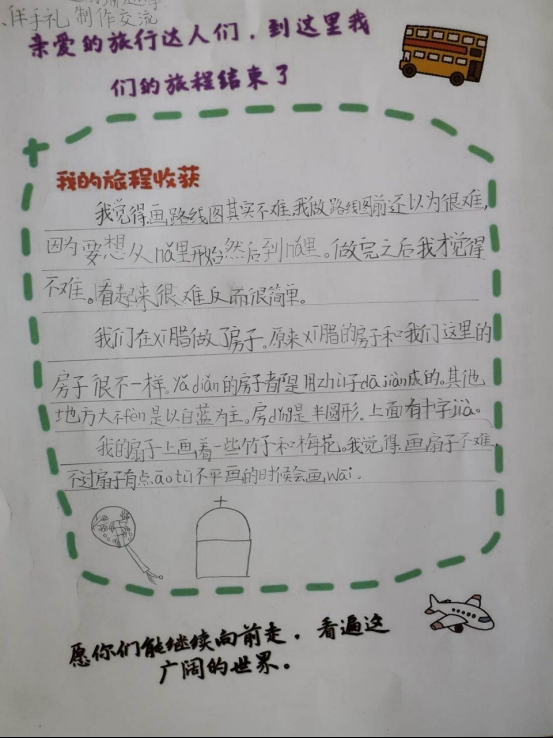 伴手礼 制作交流
亲爱的旅行达人们，到这里我
们的旅程结束了
我的旅程收获
我觉得画路线图其实不难，我做路线图前还以为很难，
因为要想从nǎ里开始然后到nǎ里。做完之后我才觉得
不难。看起来很难反而很简单。
我们在xī腊做了房子。原来xī腊的房子和我们这里的
房子很不一样。yǎ diǎn的房子都是用zhù子dā jiàn成的。其他
地方大不fen是以白蓝为主。房dǐng是半圆形，上面有十字jià。
我的扇子上画着一些竹子和梅花。我觉得画扇子不难，
不过扇子有点āo tū不平画的时候会画wāi.
愿你们能继续向前走，看遍这
广阔的世界。